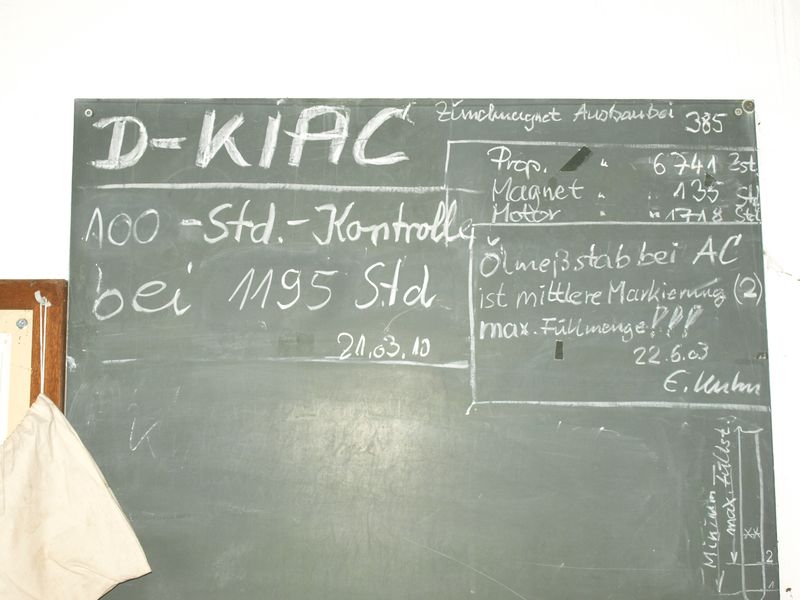 D-KIAC
Zündmagnet Ausbau bei 385
Prop. " 6741 Std.
Magnet " 135 Std
Motor " " 1718 Std
100-Std.-Kontrolle
bei 1195 Std
21.03.10
Ölmeßstab bei AC
ist mittlere Markierung (2)
max. Füllmenge!!!
22.6.03
Minimum
max. Füllst.
2
1